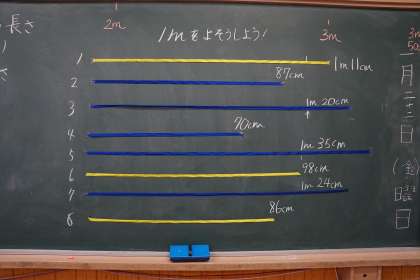 長さ
2m
3m
1mをよそうしよう!
1
1m11cm
2
87cm
3
1m 20cm
4
70cm
5
1m 35cm
6
98cm
7
1m 24cm
8
86cm
3m
50c
一月二十三日(金)
日